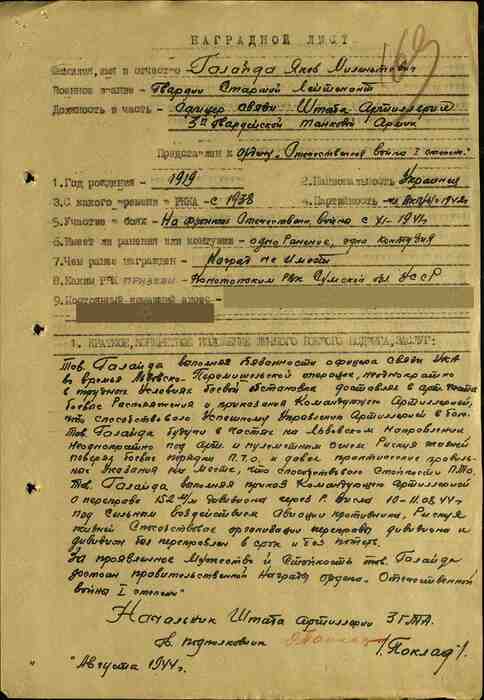 НАГРАДНОЙ ЛИСТ
169
Фамилия, имя и отчество - Галайда Яков
Военное звание - Гвардии Старший Лейтенант
Должность и часть - Офицер Связи Штаба Артиллерии
3й Гвардейской Танковой Армии
Представлен к ордену „Отечественная война I степени"
1. Год рождения - 1919 2. Национальность Украинец
3. С какого времени в РККА - с 1938 4. Партийность -
5. Участие в боях - На фронтах Отечествен. войны с XI-1941г.
6. Имеет ли ранения или контузии - одно Ранение, одно контузия
7. Чем ранее награжден - Наград не имеет
8. Каким РВК призван - Конотопским РВК Сумской обл УССР
9. Постоянный домашний адрес -
1. КРАТКОЕ, КОНКРЕТНОЕ ИЗЛОЖЕНИЕ ЛИЧНОГО БОЕВОГО ПОДВИГА, ЗАСЛУГ:
Тов. Галайда выполняя обязанности офицера связи УКА
во время Львовско-Перемышльской операции, неоднократно
в трудных условиях боевой обстановки доставлял в арт. части
боевые Распоряжения и приказания Командующего Артиллерией,
что способствовало Успешному Управлению Артиллерией в бою.
Тов. Галайда будучи в частях на Львовском направлении
неоднократно под арт и пулеметным огнем Рискуя жизней
поверял боевые порядки П.Т.О. и давал практические правиль-
ные Указания на месте, что способствовало Стойкости П.Т.О.
Тов. Галайда выполняя приказ Командующего Артиллерией
о переправе 152 м/м дивизиона через р. Висла 10-11.08.44г
под сильным воздействием Авиации противника, Рискуя
жизней Способствовал организации переправы дивизиона и
дивизион был переправлен в срок и без потерь.
За проявленное Мужество и Стойкость тов. Галайда
достоин правительственной Награды ордена „Отечественной
война I степени"
Начальник Штаба Артиллерии 3 ГТА.
Гв. подполковник /Поклад/.
" Августа 1944г.